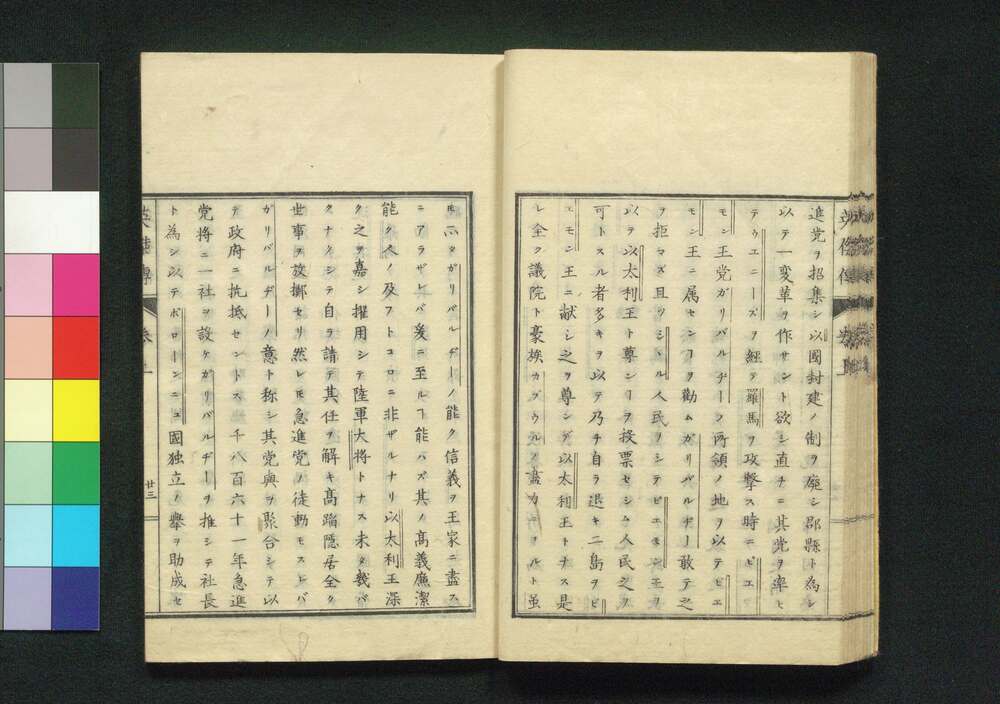 進党ヲ招集シ以國封建ノ制ヲ廃シ郡縣ト為シ
以テ一変革ヲ作サント欲シ直チニ其党ヲ率ヒ
テウエニーズヲ經テ羅馬ヲ攻撃ス時ニピエ
モン王党ガリバルヂーノ所領ノ地ヲ以テピエ
モン王ニ属センヿヲ勸ムガリバルヂー敢テ之
ヲ拒マズ且ツシシル人民ヲシテピエモン王ヲ
以テ以太利王ト尊ンヿヲ投票セシム人民之ヲ
可トスル者多キヲ以テ乃チ自ラ退キ二島ヲピ
エモン王ニ献シ之ヲ尊ンデ以太利王トナス是
レ全ク議院ト豪族カブウルノ盡力ニヨルト虽
モ亦タガリバルヂーノ能ク信義ヲ王家ニ盡ス
ニアラザレバ爰ニ至ルヿ能ハズ其ノ髙義廉潔
能ク人ノ及フトコロニ非ザルナリ以太利王深
ク之ヲ嘉シ擢用シテ陸軍大将トナス未タ幾バ
クナクシテ自ラ請テ其任ヲ解キ髙踏隠居全ク
世事ヲ放擲セリ然レモ急進党ノ徒動モスレバ
ガリバルヂーノ意ト称シ其党與ヲ聚合シテ以
テ政府ニ抗抵セントス一千八百六十一年急進
党将ニ一社ヲ設ケガリバルヂーヲ推シテ社長
ト為シ以テポローンニュ國独立ノ舉ヲ助成セ
廿三